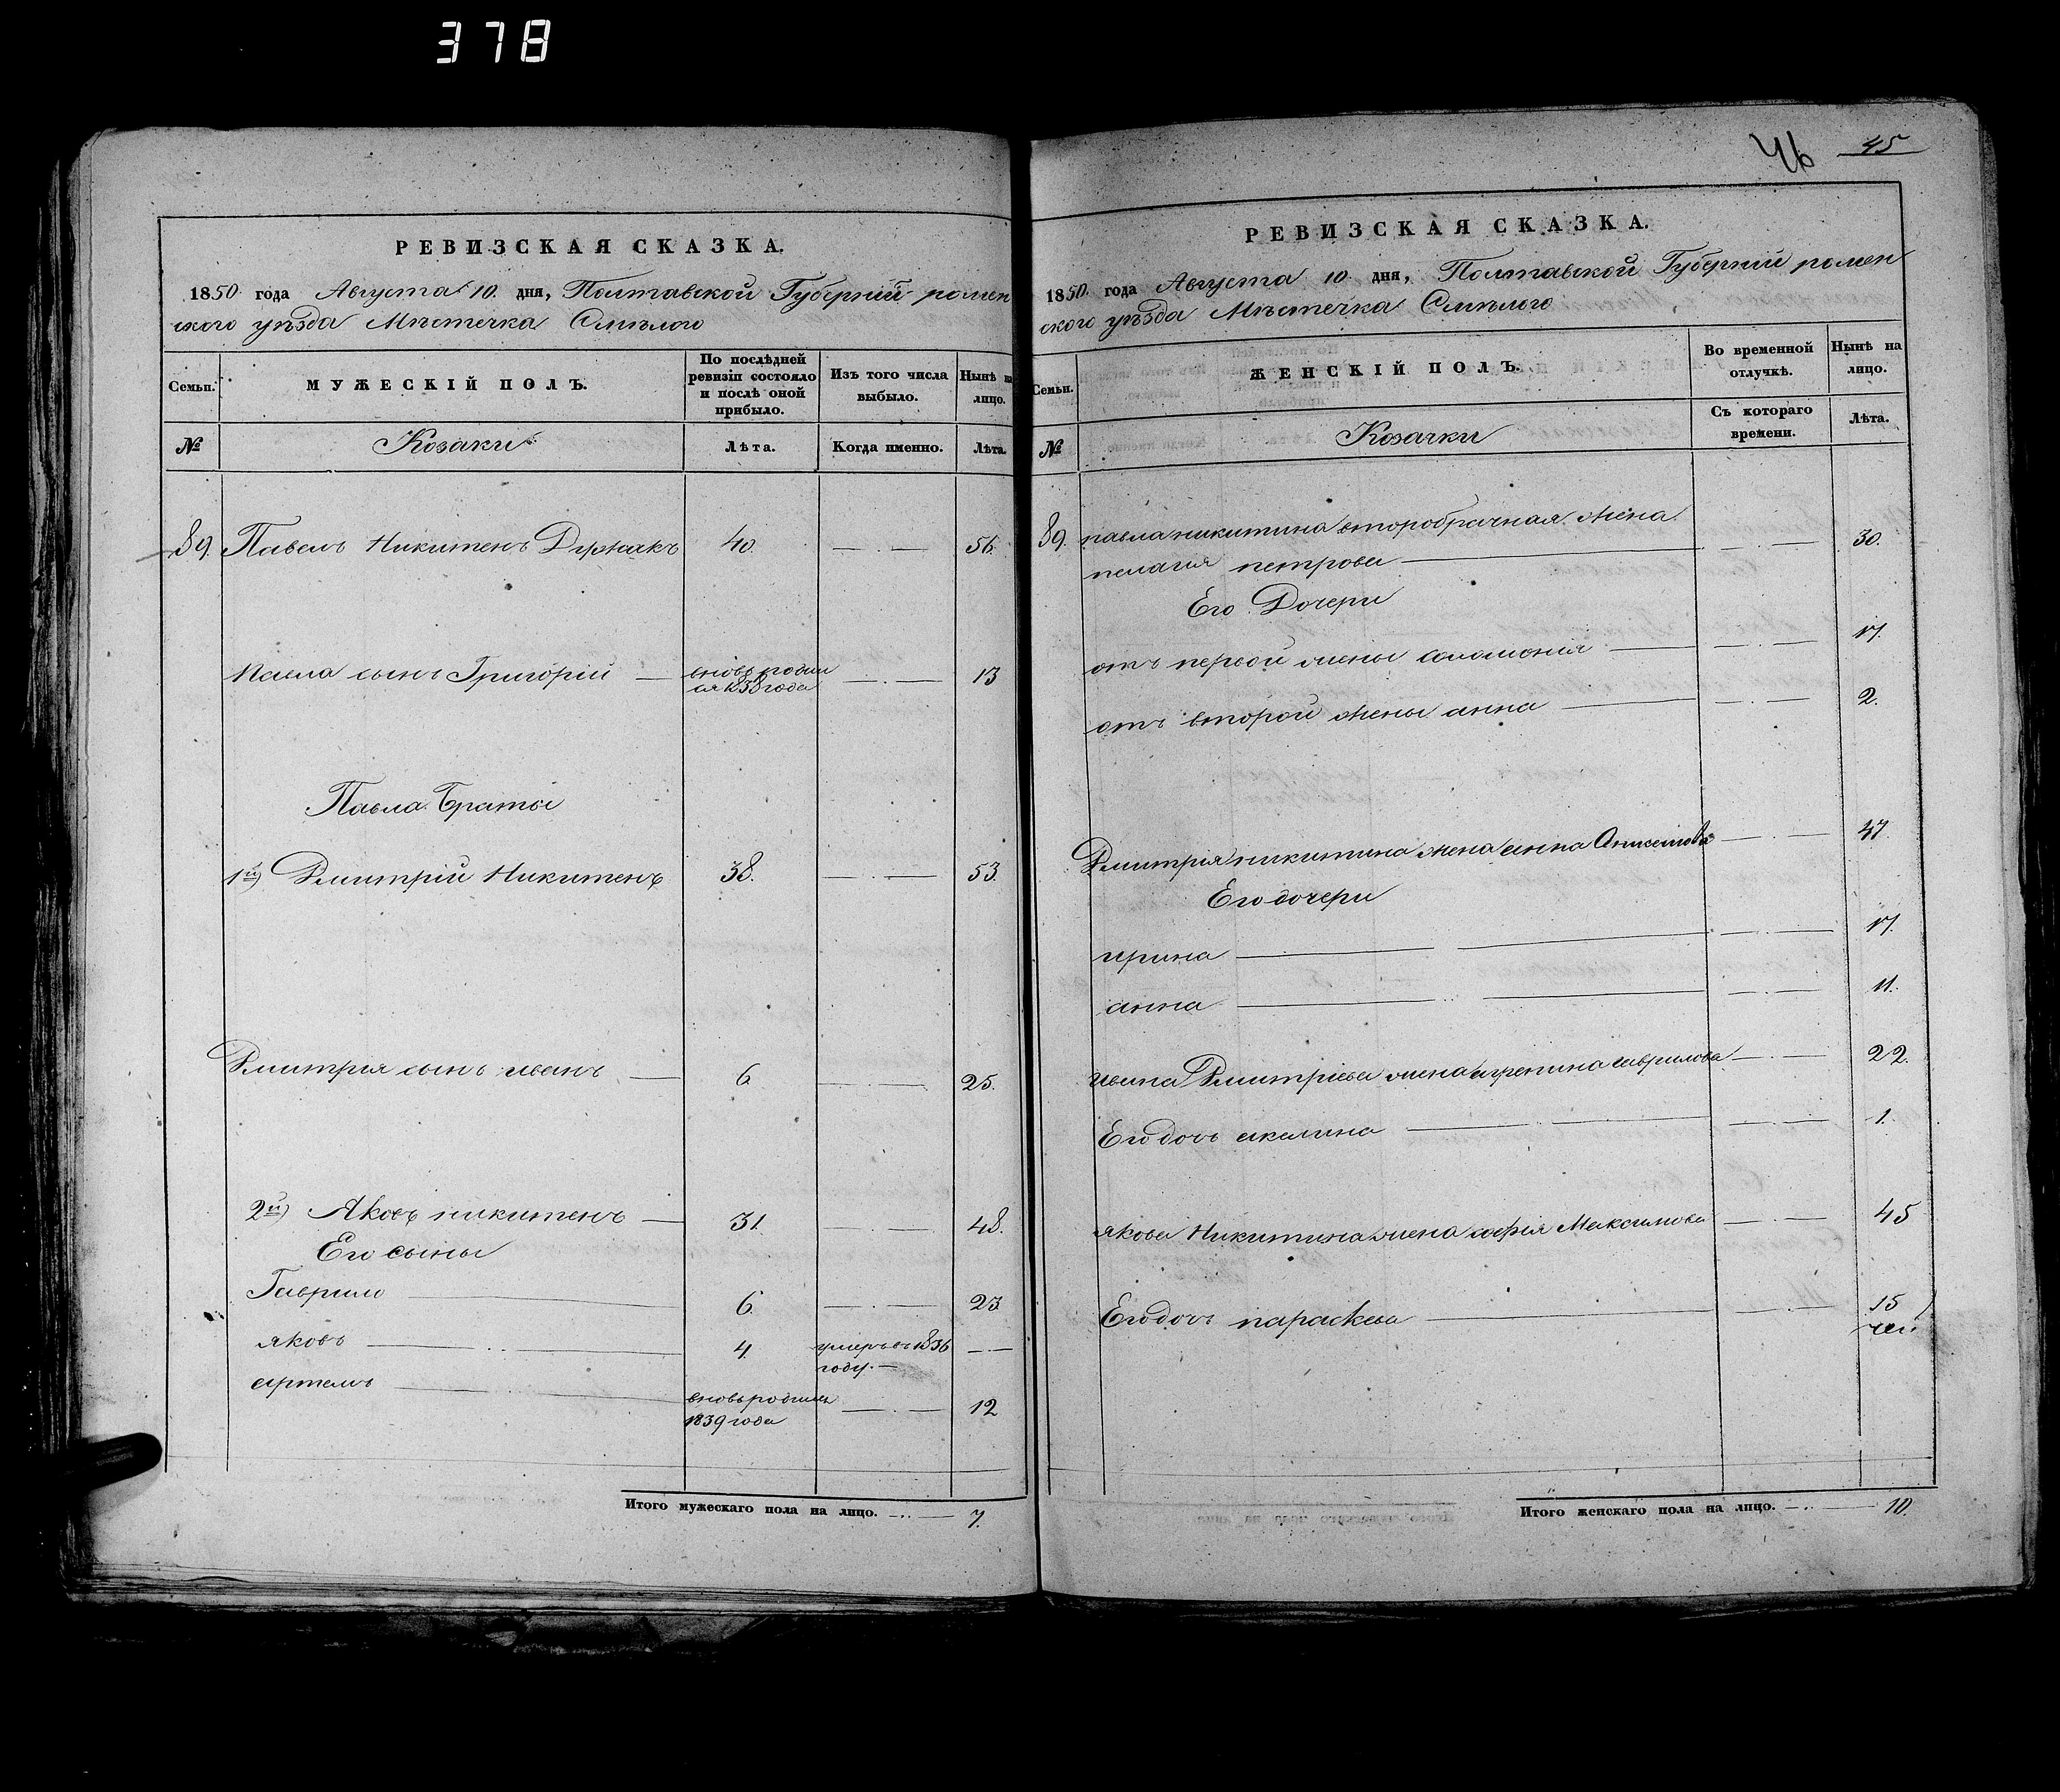 378
РЕВИЗСКАЯ СКАЗКА.
1850 года Августа 10. дня, Полтавской Губерніи ромен
ского уѣзда Мѣстечка Смѣлого
Семьи.
МУЖЕСКІЙ ПОЛЪ.
По послѣдней ревизіи состояло и послѣ оной прибыло.
Изъ того числа выбыло.
Нынѣ на лицо.
№
Козаки
Лѣта.
Когда именно.
Лѣта.
89. Павелъ Никитенъ Држакъ 40. 56.
Павла сынъ Григорій вновь родил
ся 1838 года 13
Павла Браты
1й) Дмитрій Никитенъ 38. 53.
Дмитрия сынъ иванъ 6. 25.
2й) Яковъ никитенъ 31. 48.
Его сыны
Гаврило 6. 23
яковъ 4. умеръ въ 1836
году.
артемъ вновь родился
1839 года 12
Итого мужескаго пола на лицо. 7.
46 45
РЕВИЗСКАЯ СКАЗКА.
1850. года Августа 10 дня, Полтавской Губерніи ромен
ского уѣзда Мѣстечка Смѣлого
Семьи.
ЖЕНСКІЙ ПОЛЪ.
Во временной отлучкѣ.
Нынѣ на лицо.
№
Козачки
Съ котораго времени.
Лѣта.
89. павла никитина второбрачная жена
пелагия петрова 30.
Его Дочери
отъ первой жены соломония 17.
отъ второй жены анна 2.
Дмитрія никитина жена анна 47
Его дочери
ирина 17.
анна 11.
ивана Дмитріева жена агрепина гаврилова 22.
Его дочь акилина 1.
якова Никитина жена софія Максимова 45
Его дочь параскева 15
Итого женскаго пола на лицо. 10.